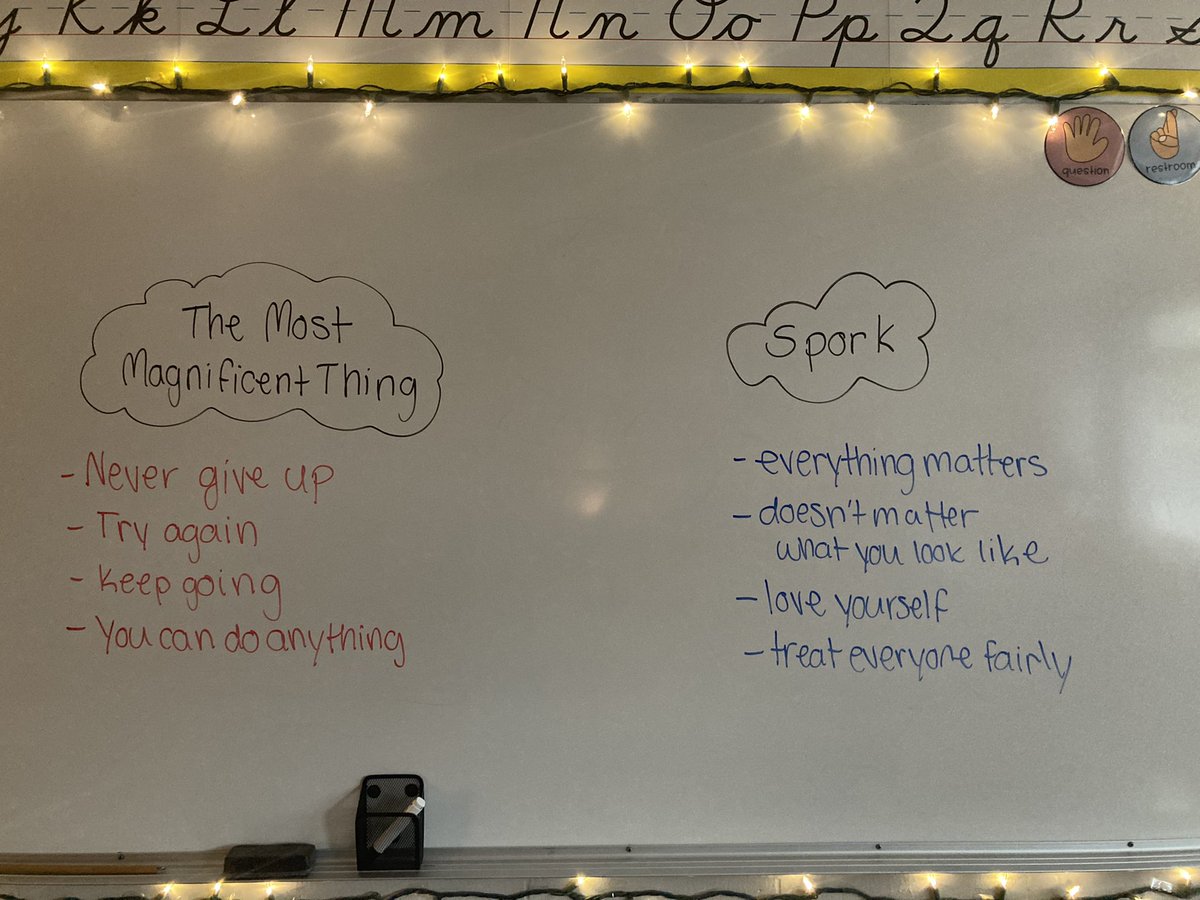 K k L l M m N n O o P p Q q R r
question
restroom
The Most
Magnificent Thing
- Never give up
- Try again
- keep going
- You can do anything
Spork
- everything matters
- doesn't matter
what you look like
- love yourself
- treat everyone fairly